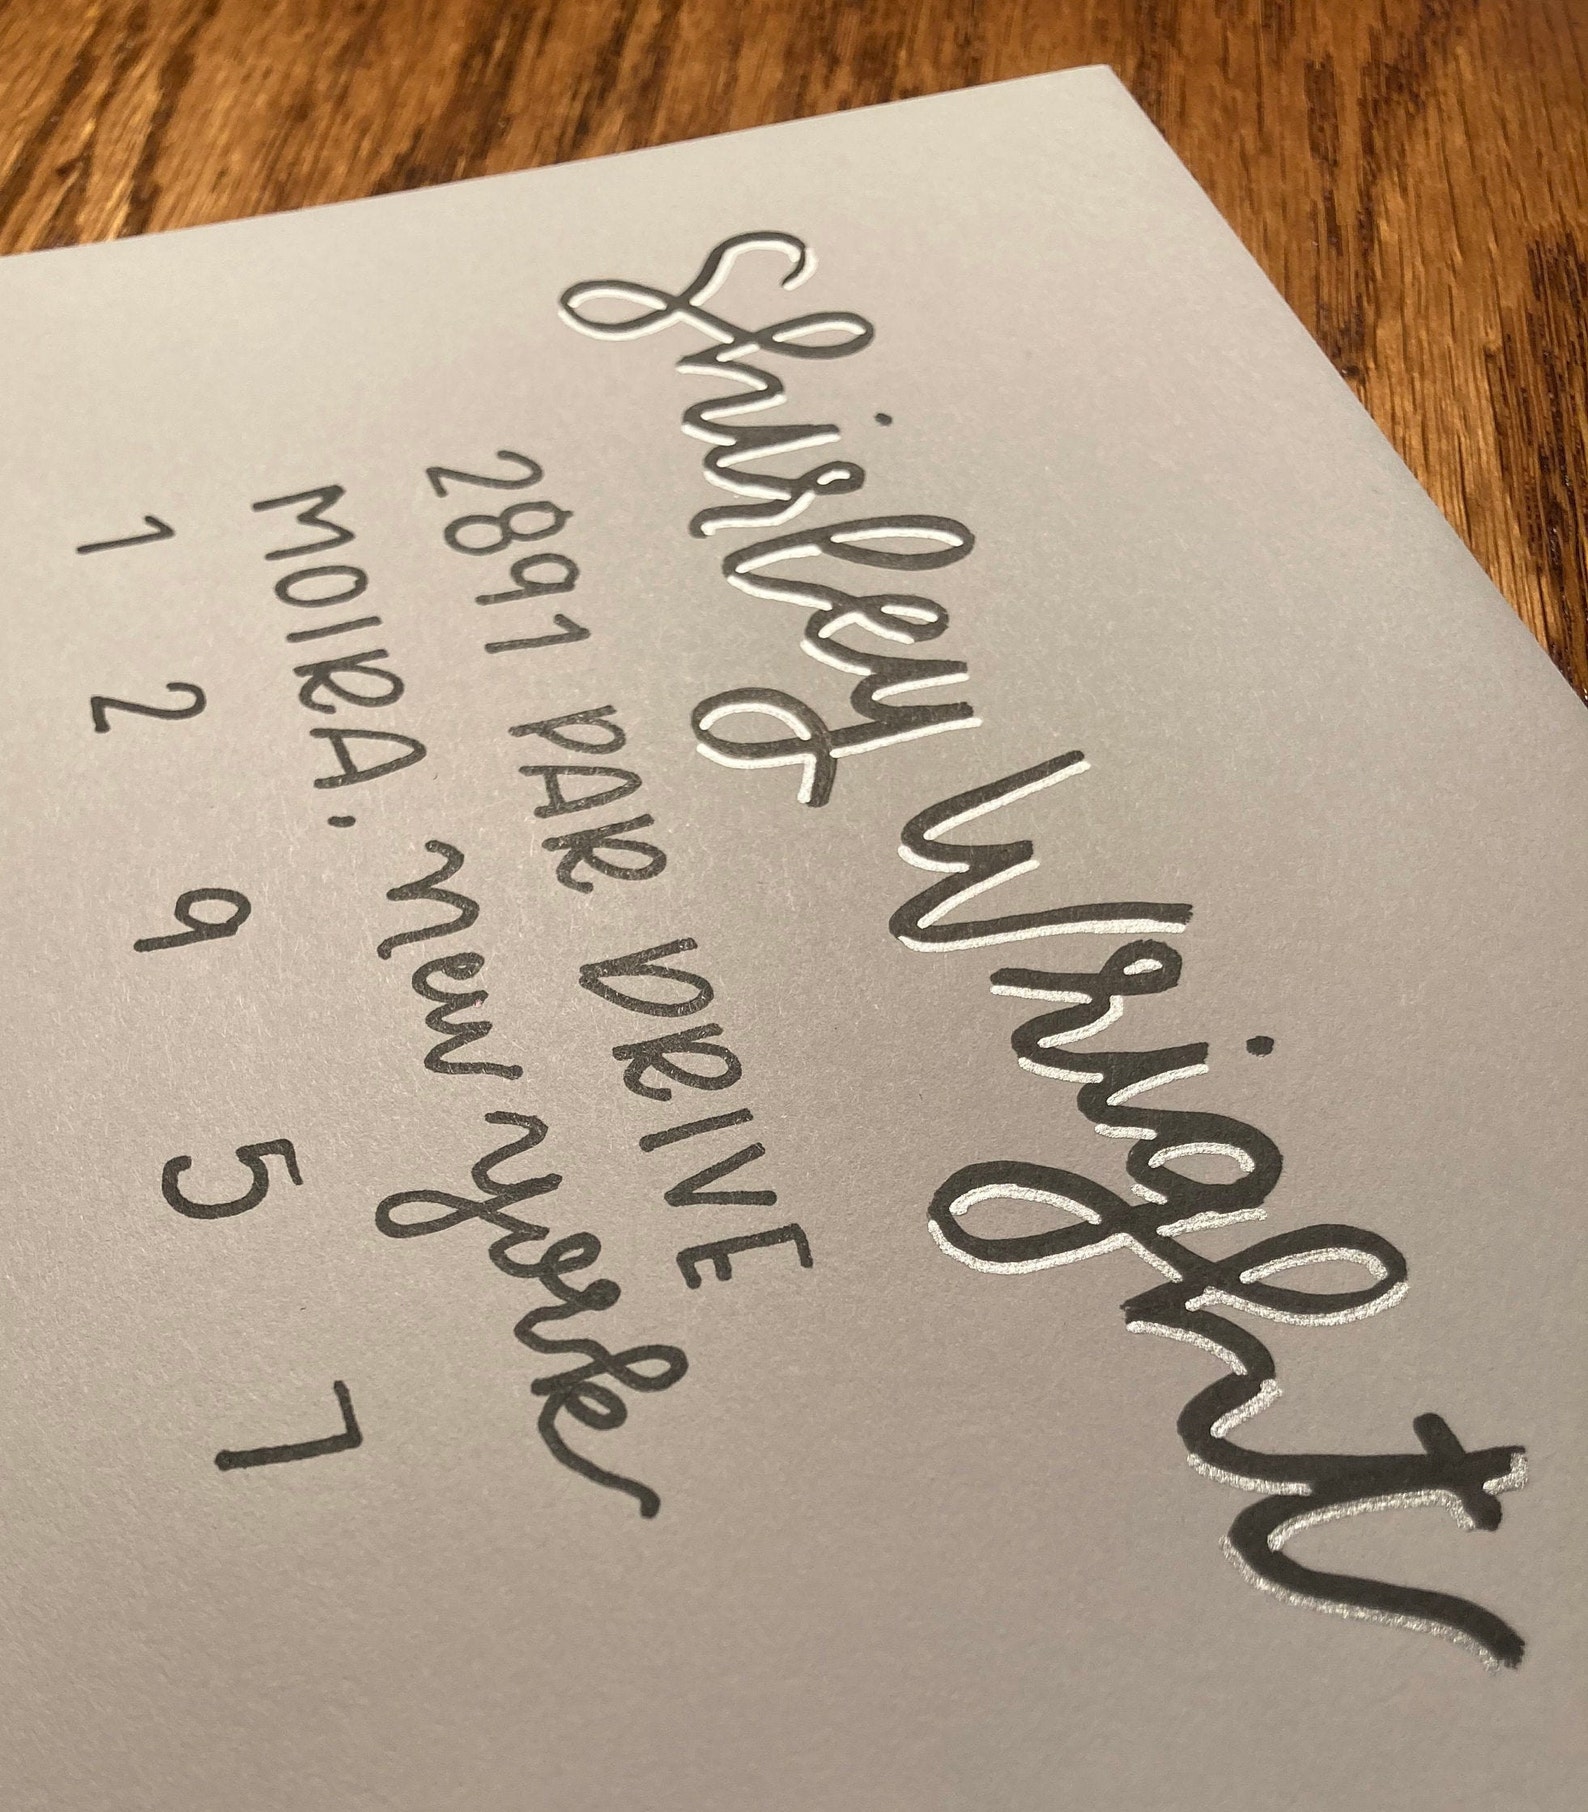 Shirley Wright
2891 PAR DRIVE
MOIRA. New York
1 2 9 5 7